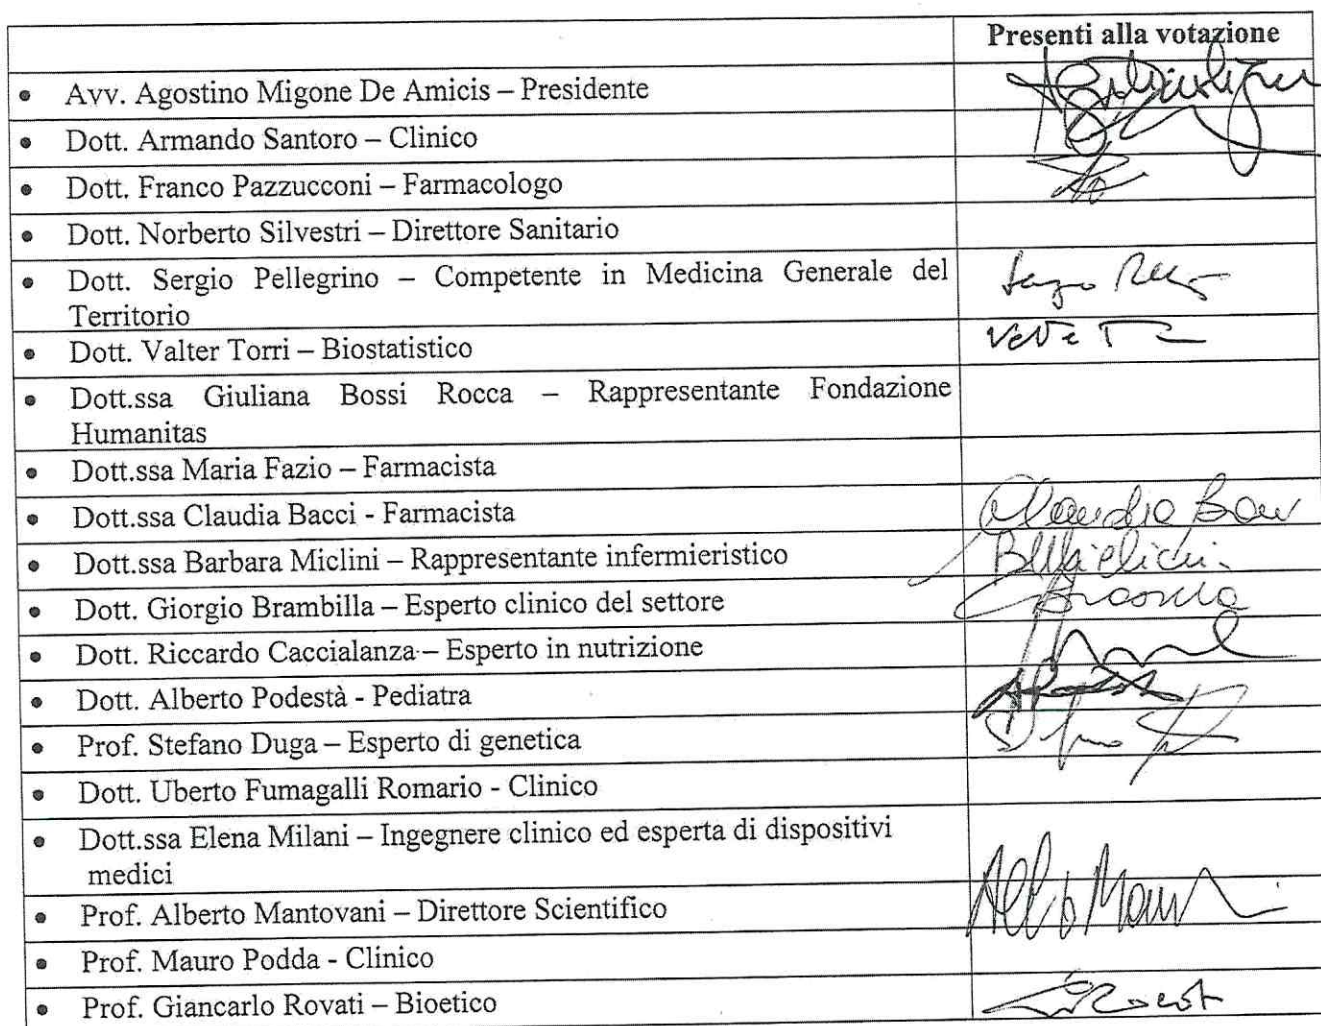 Presenti alla votazione
• Avv. Agostino Migone De Amicis – Presidente
• Dott. Armando Santoro – Clinico
• Dott. Franco Pazzucconi – Farmacologo
• Dott. Norberto Silvestri – Direttore Sanitario
• Dott. Sergio Pellegrino – Competente in Medicina Generale del
Territorio
• Dott. Valter Torri – Biostatistico
• Dott.ssa Giuliana Bossi Rocca – Rappresentante Fondazione
Humanitas
• Dott.ssa Maria Fazio – Farmacista
• Dott.ssa Claudia Bacci - Farmacista
• Dott.ssa Barbara Miclini – Rappresentante infermieristico
• Dott. Giorgio Brambilla – Esperto clinico del settore
• Dott. Riccardo Caccialanza – Esperto in nutrizione
• Dott. Alberto Podestà - Pediatra
• Prof. Stefano Duga – Esperto di genetica
• Dott. Uberto Fumagalli Romario - Clinico
• Dott.ssa Elena Milani – Ingegnere clinico ed esperta di dispositivi
medici
• Prof. Alberto Mantovani – Direttore Scientifico
• Prof. Mauro Podda - Clinico
• Prof. Giancarlo Rovati – Bioetico